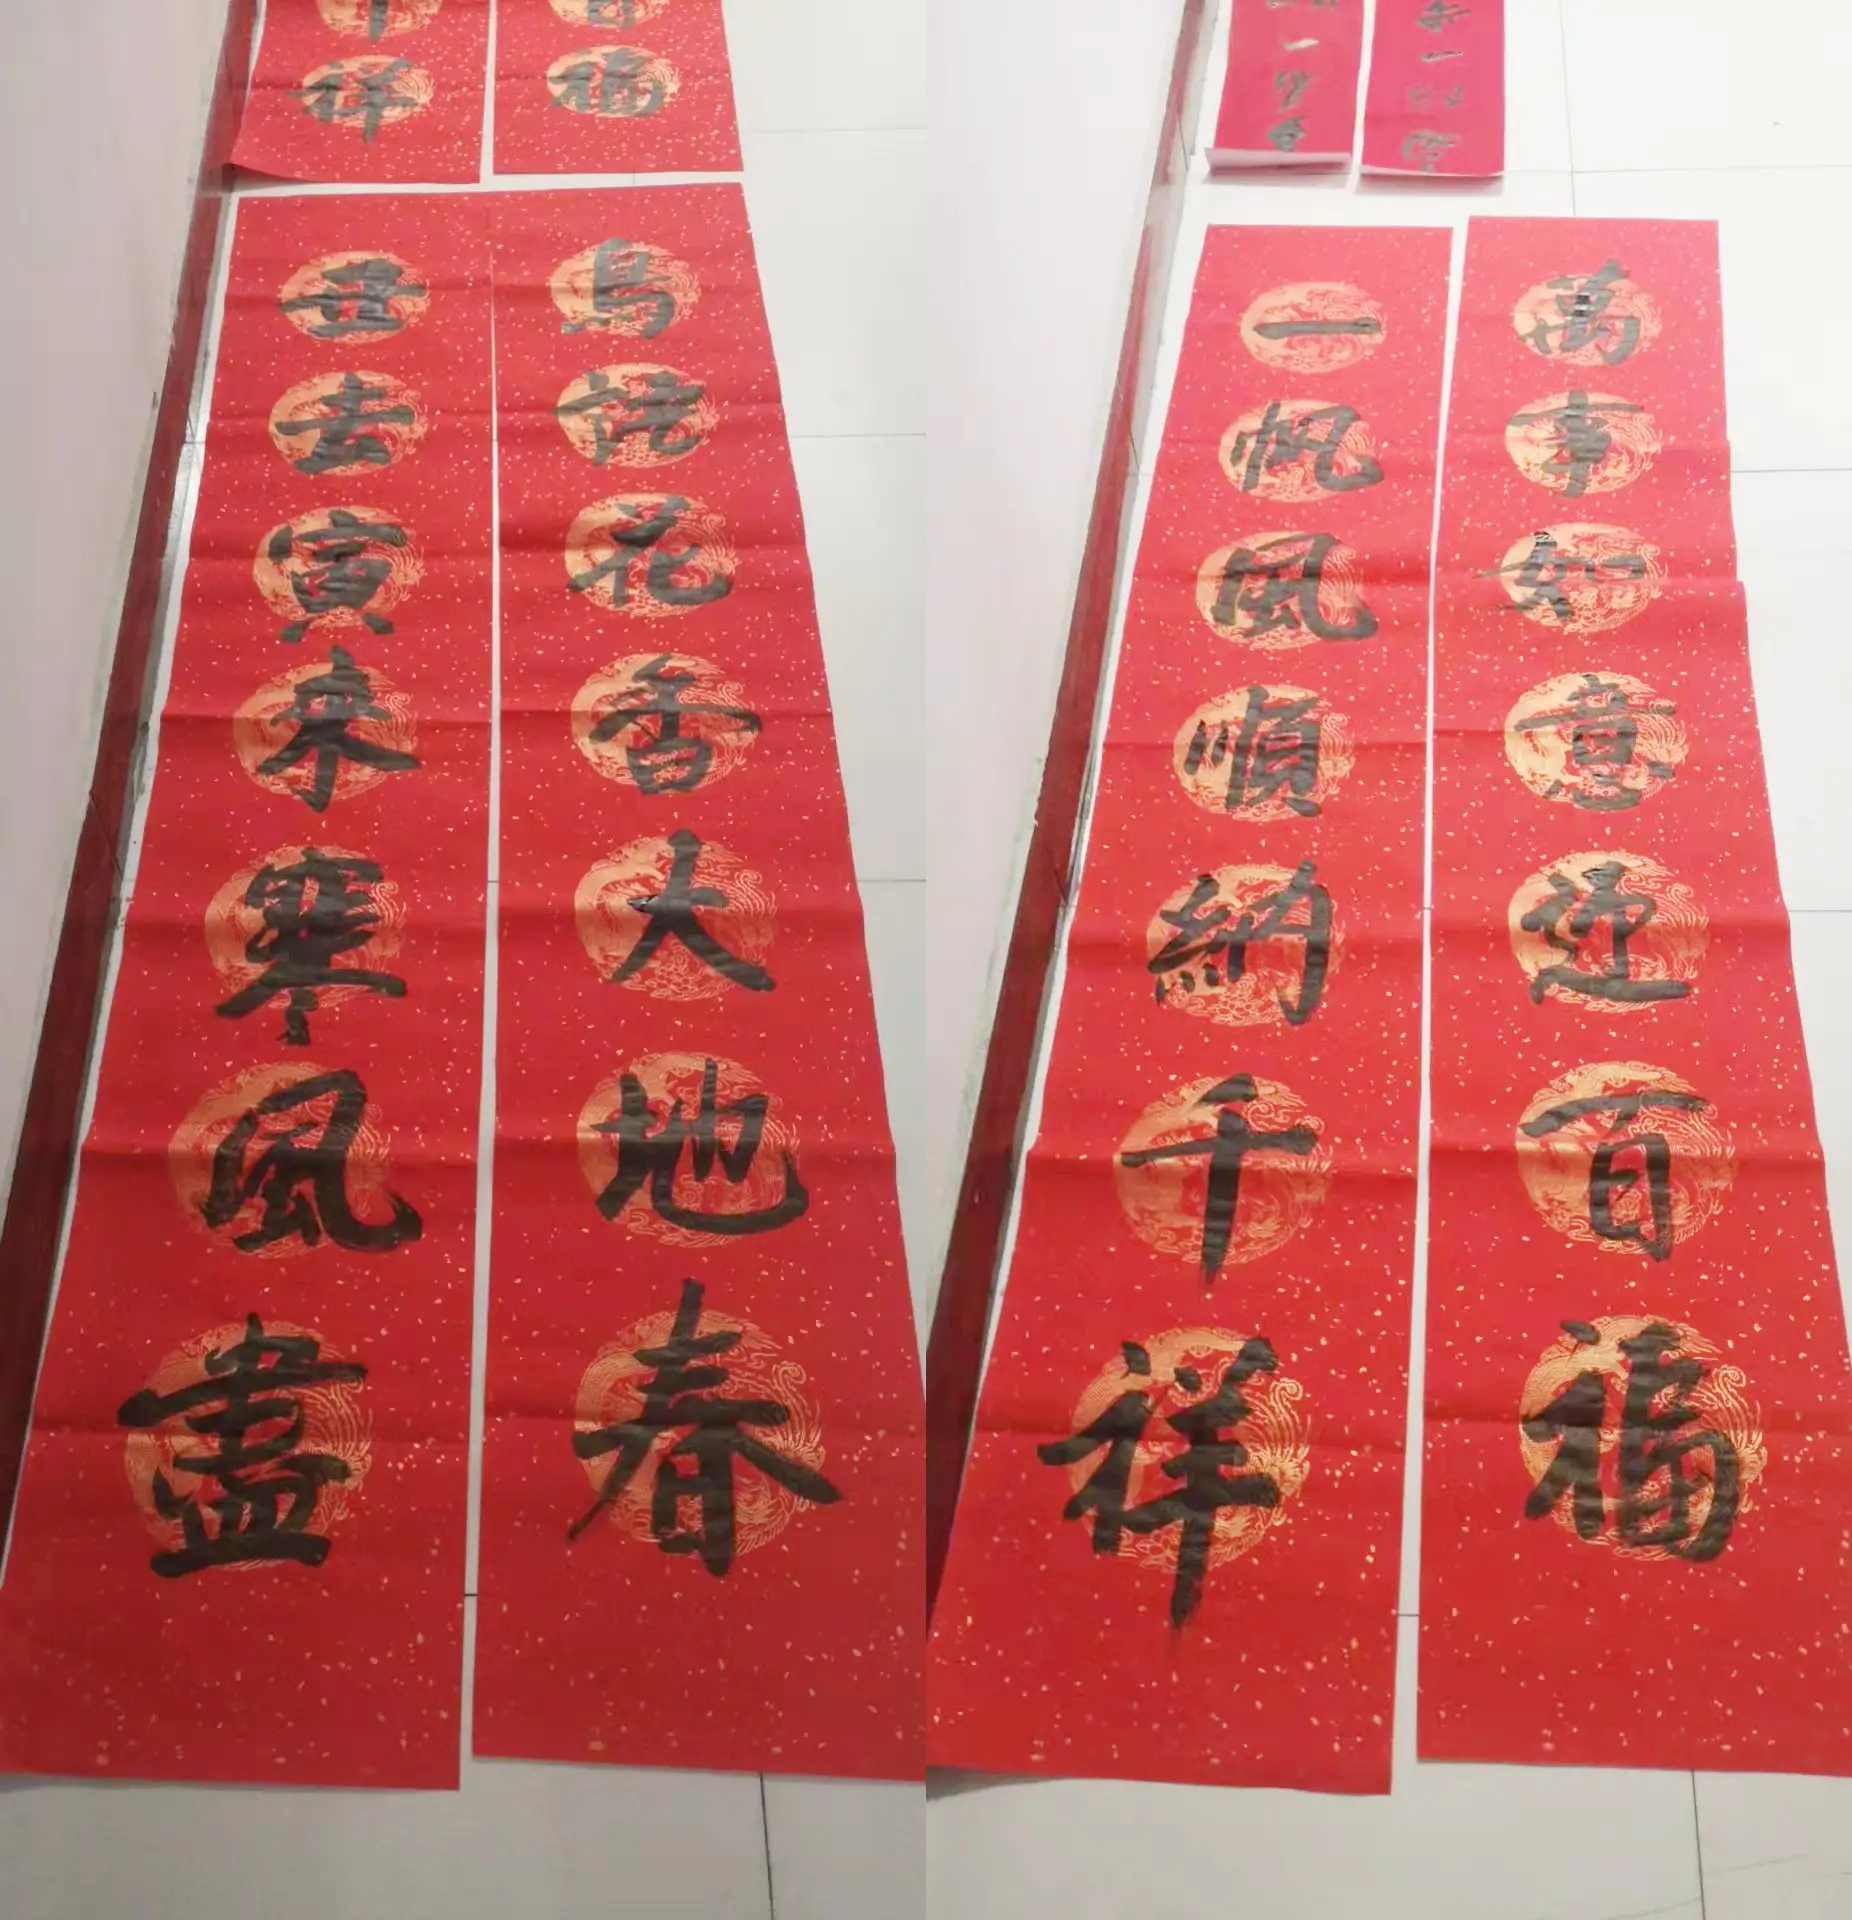 祥
福
丑去寅来寒風盡
鳥語花香大地春
一帆風順納千祥
萬事如意迎百福